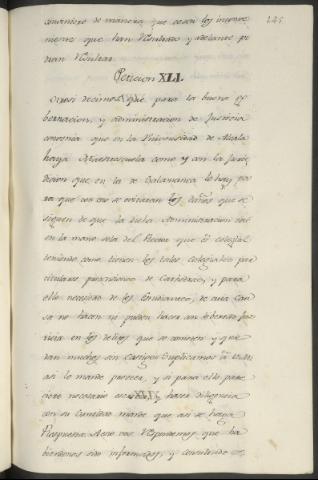 145
conveniere de manera que cesen los inconve
nientes que han resultado y adelante po
drian resultar.
Peticion XLI.
Otrosi decimos que para la buena go
bernacion, y administracion de Justicia
convernia que en la Universidad de Alcala
haya Maestrescuela como y con la Juris
dicion que en la de Salamanca le hay, pa
ra que con eso se evitarian los daños que se
siguen de que la dicha Administracion este
en la mano sola del Rector que es colegial
teniendo como tienen los tales colegiales par
ticulares pretensiones de Cathedras, y para
ello necesidad de los Estudiantes, de cuia cau
sa no hacen ni pueden hacer tan libremente Jus
ticia en los delitos que se cometen y que
dan muchos sin castigo: Suplicamos a V. M.
asi lo mande proveer, y si para ello pare
ciere necesario escribir, y hacer diligencia
con su Santidad mande que asi se haga
Respuesta. A esto vos respondemos que ha
biendonos sin informados, y consultado se